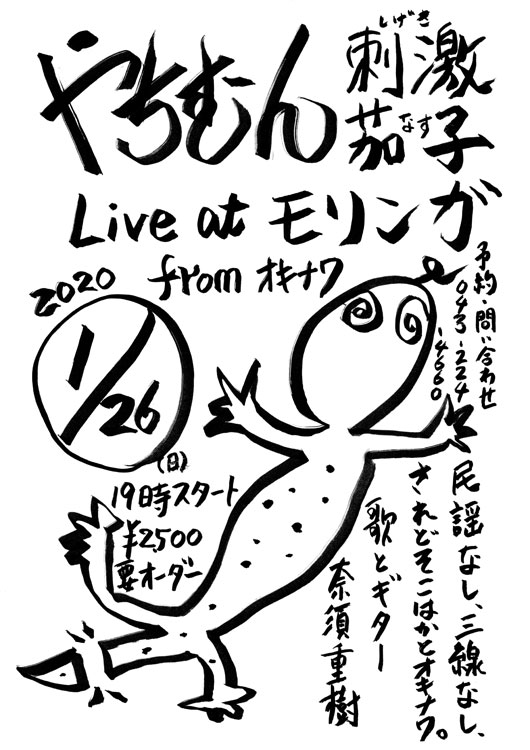 やちむん
刺激
しげき
茄子
なす
Live at モリンガ
from オキナワ
2020
1/26
(日)
19時スタート
¥2500
要オーダー
予約・問い合わせ
043-224
-4660
民謡なし、三線なし、
されどそこはかとオキナワ。
歌とギター
奈須重樹